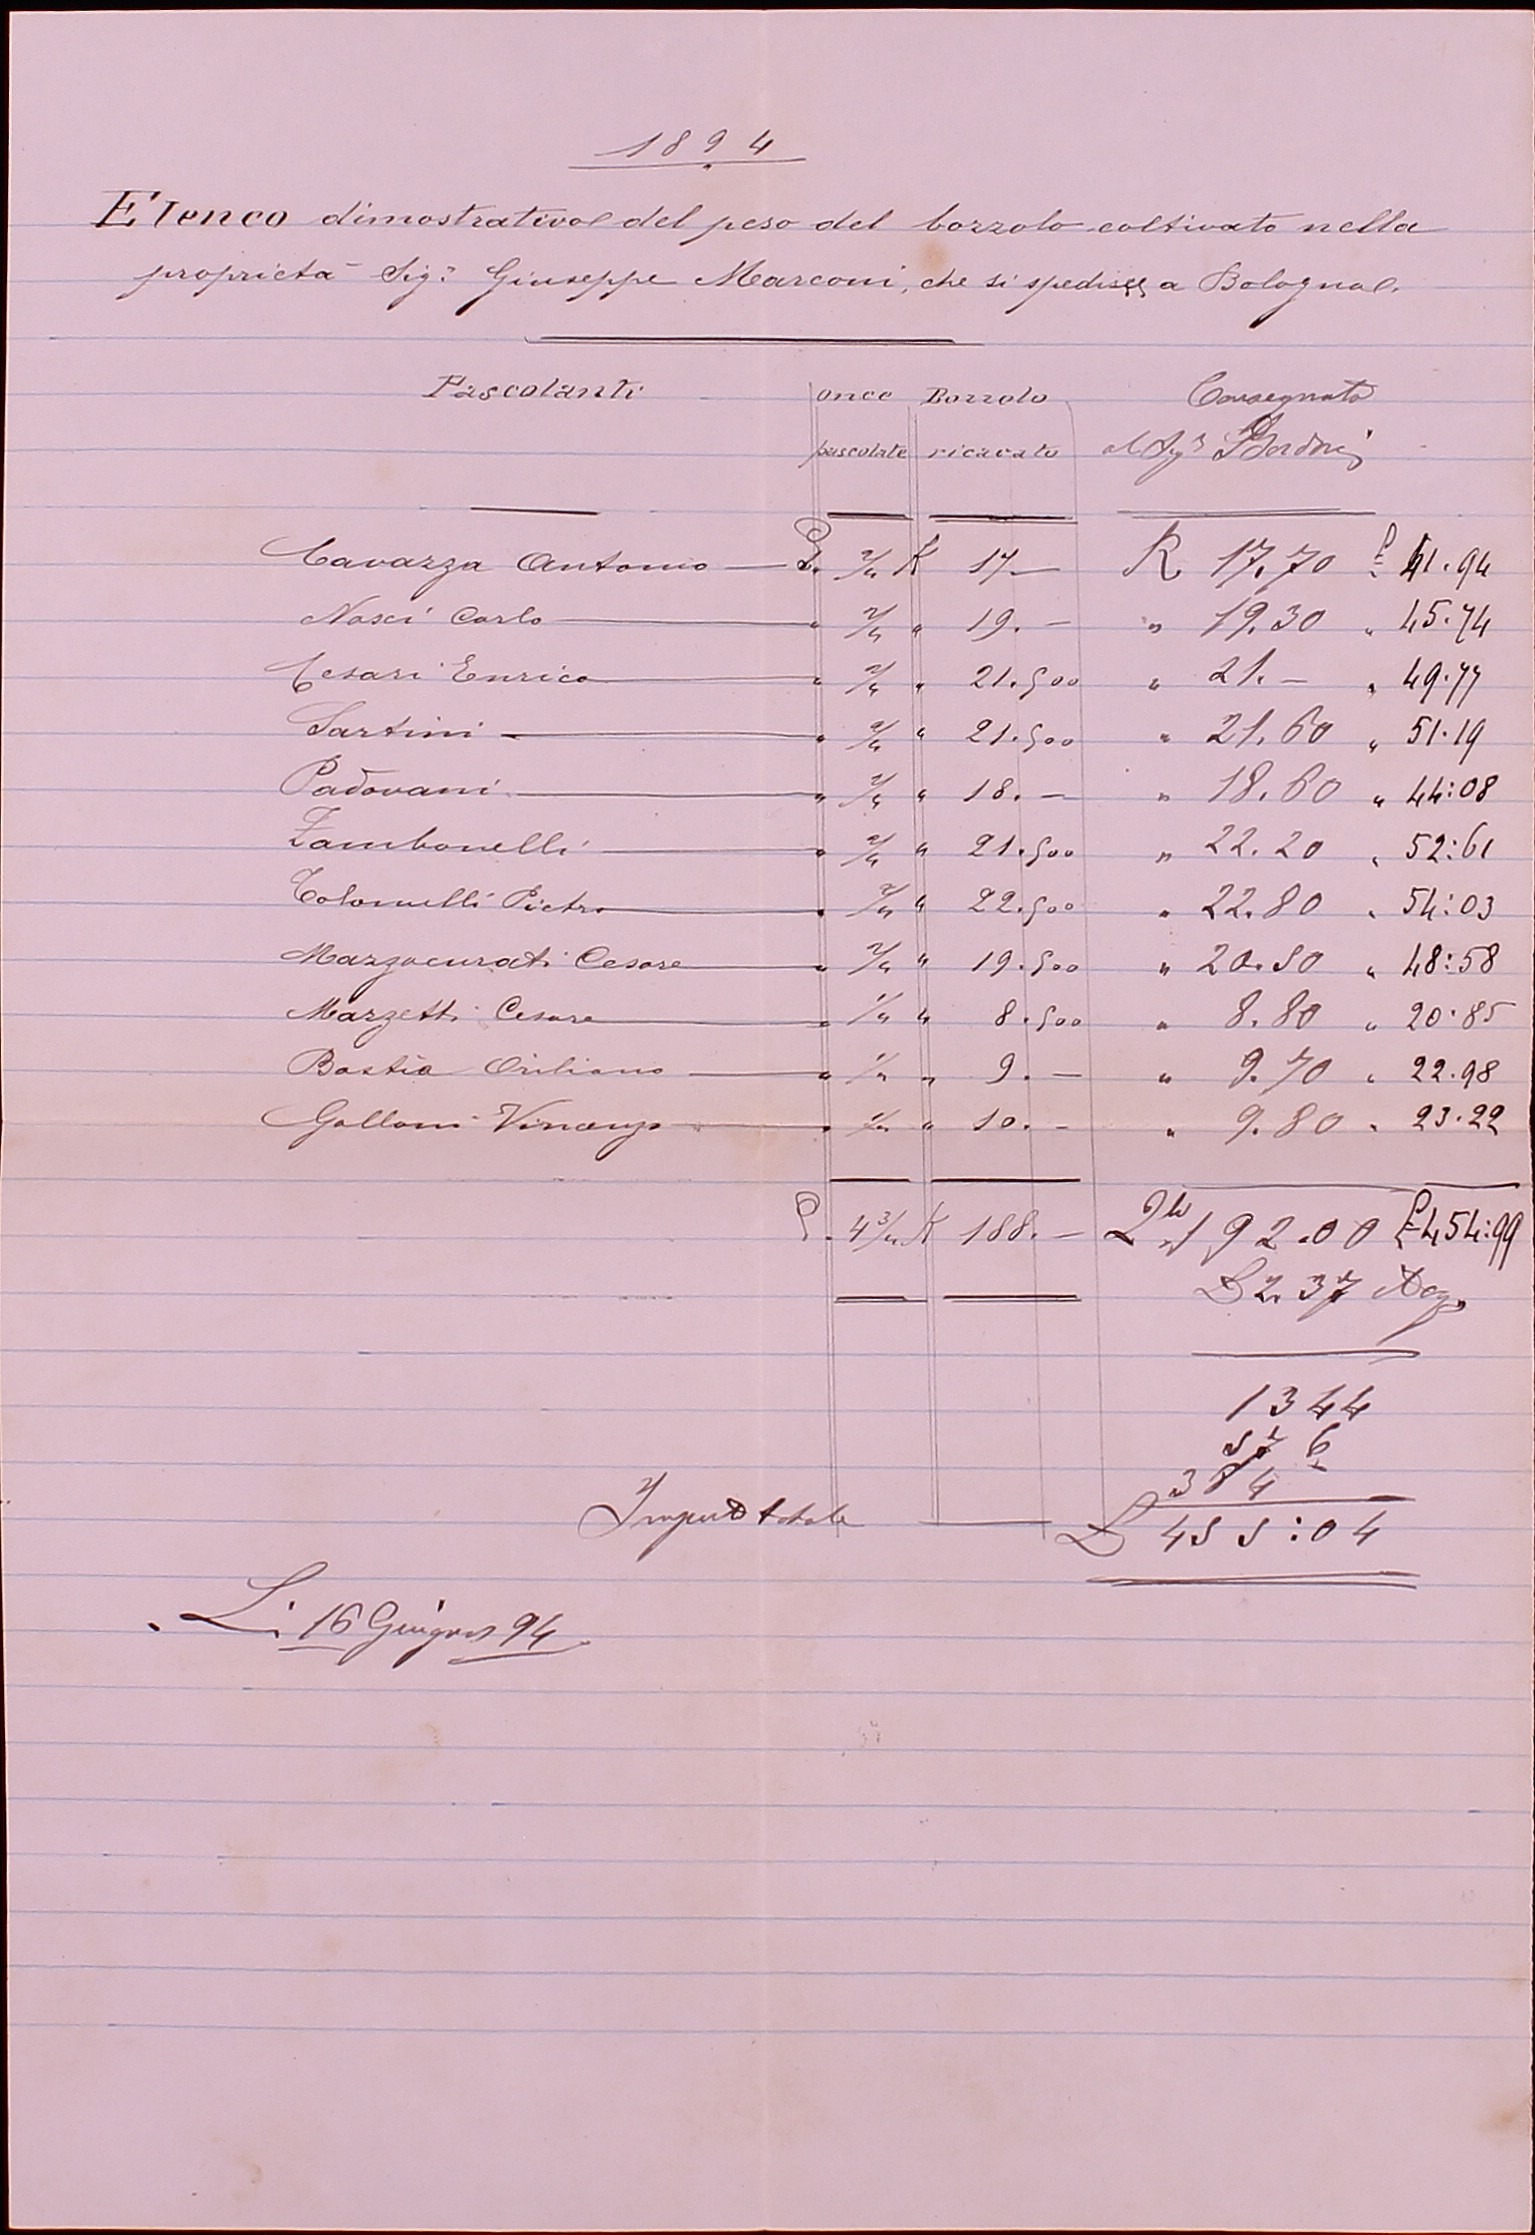 1894
Elenco dimostrativo del peso del bozzolo coltivato nella
proprietà Sig.r Giuseppe Marconi, che si spedisce a Bologna.
Pascolanti once Bozzolo Consegnato
pascolate ricavato al Sig.r
Cavazza Antonio — P. 2/4 K 17 — K 17.70 £ 41.94
Nasci Carlo — " 2/4 " 19. — " 19.30 " 45.74
Cesari Enrico — " 2/4 " 21.500 " 21. — " 49.77
Sartini — " 2/4 " 21.500 " 21.60 " 51.19
Padovani — " 2/4 " 18. — " 18.60 " 44:08
Zambonelli — " 2/4 " 21.500 " 22.20 " 52:61
Colomelli Pietro — " 2/4 " 22.500 " 22.80 " 54:03
Marzocurati Cesare — " 2/4 " 19.500 " 20.50 " 48:58
Marzetti Cesare — " 1/4 " 8.500 " 8.80 " 20.85
Bastia — " 1/4 " 9. — " 9.70 " 22.98
Galloni Vincenzo — " 1/4 " 10. — " 9.80 " 23.22
P. 4 3/4 K 188. — 192.00 £ 454:99
L 2.37
1344
576
384
Importo totale — L 455:04
Li 16 Giugno 94